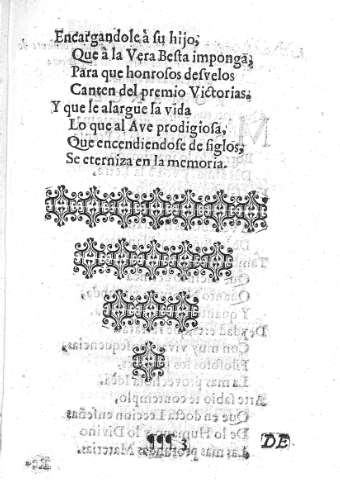 Encargandole à su hijo,
Que à la Vera Besta imponga,
Para que honrosos desvelos
Canten del premio Victorias.
Y que se alargue la vida
Lo que al Ave prodigiosa,
Que encendiendose de siglos,
Se eterniza en la memoria.
¶¶¶ 3
DE